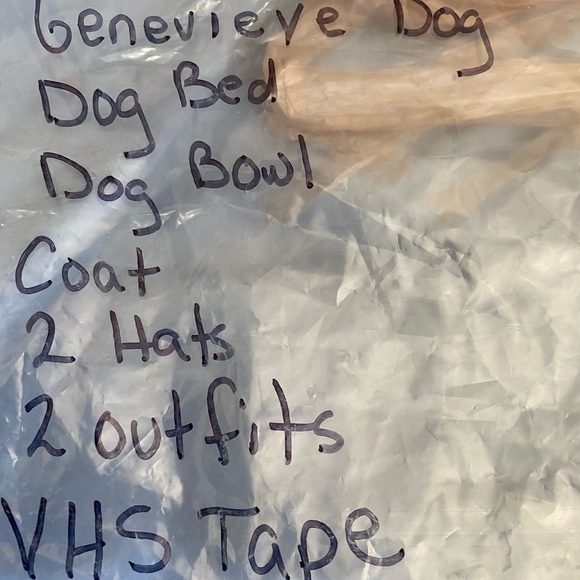 Genevieve Dog
Dog Bed
Dog Bowl
Coat
2 Hats
2 outfits
VHS Tape